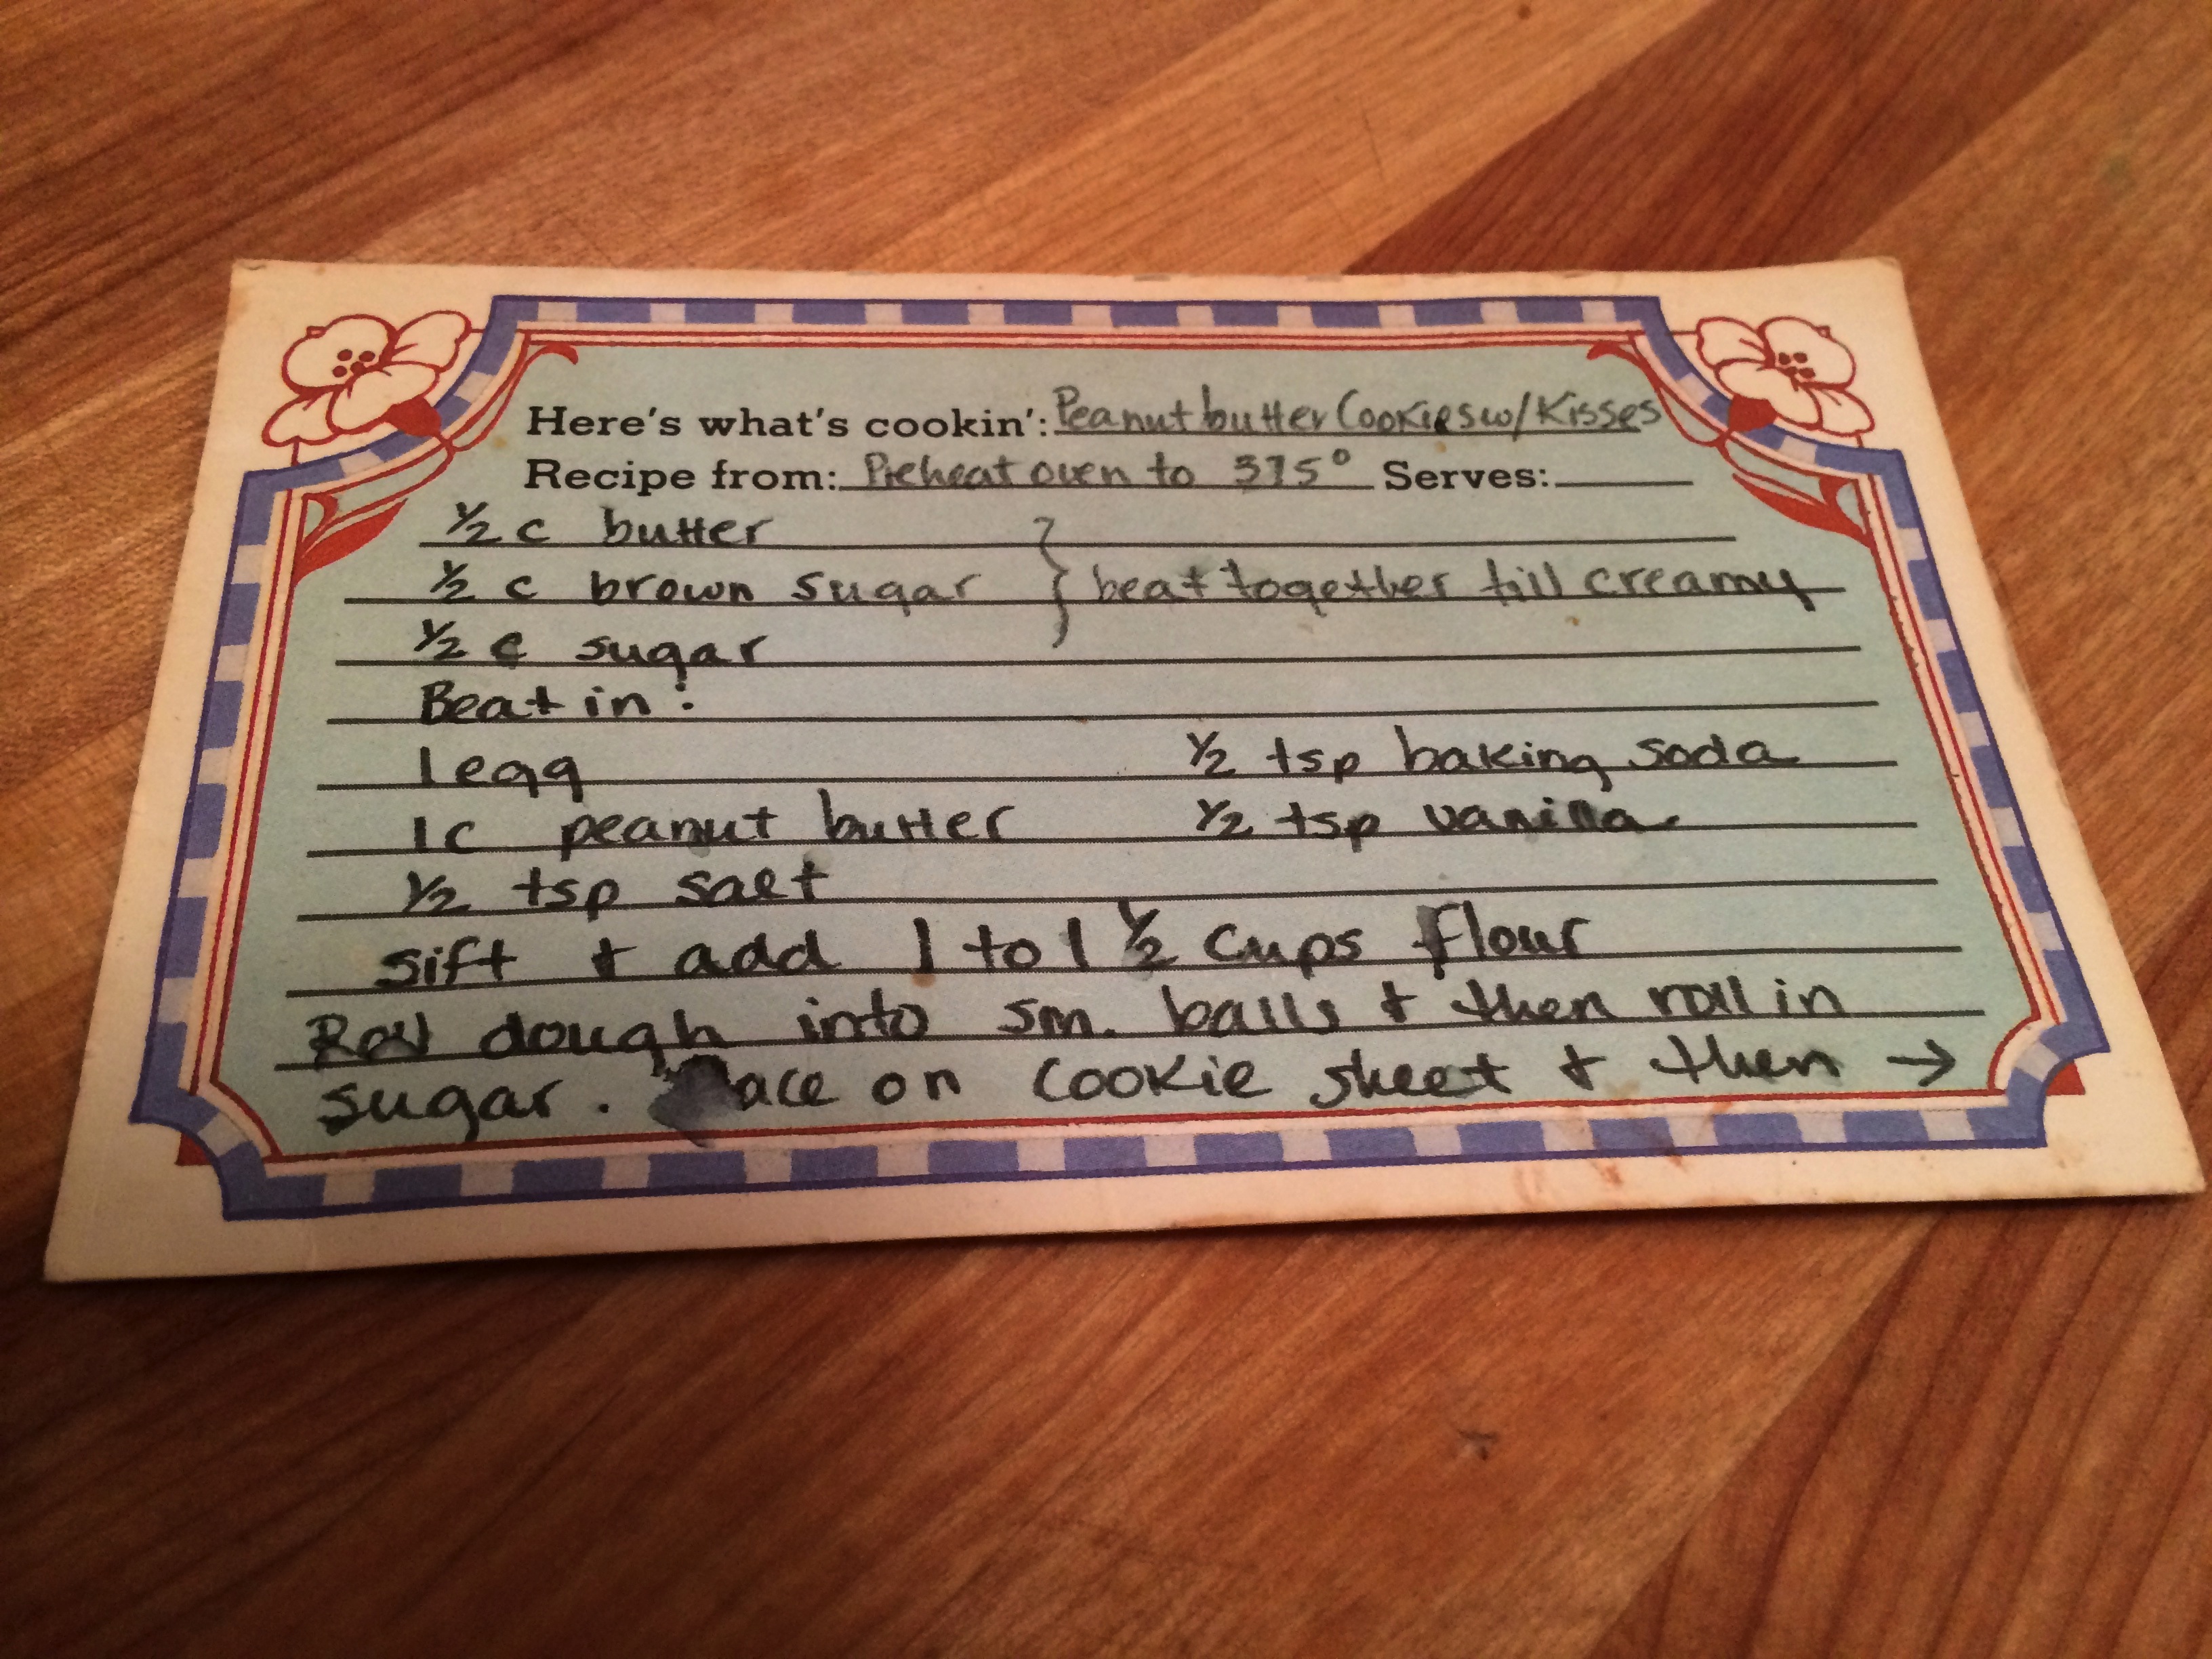 Here's what's cookin': Peanut butter Cookies w/ Kisses
Recipe from: Preheat oven to 375° Serves:
½ c butter
½ c brown sugar } beat together till creamy
½ c sugar
Beat in:
1 egg ½ tsp baking soda
1c peanut butter ½ tsp vanilla
½ tsp salt
sift & add 1 to 1 ½ cups flour
Roll dough into sm. balls & then roll in
sugar. Place on cookie sheet & then →